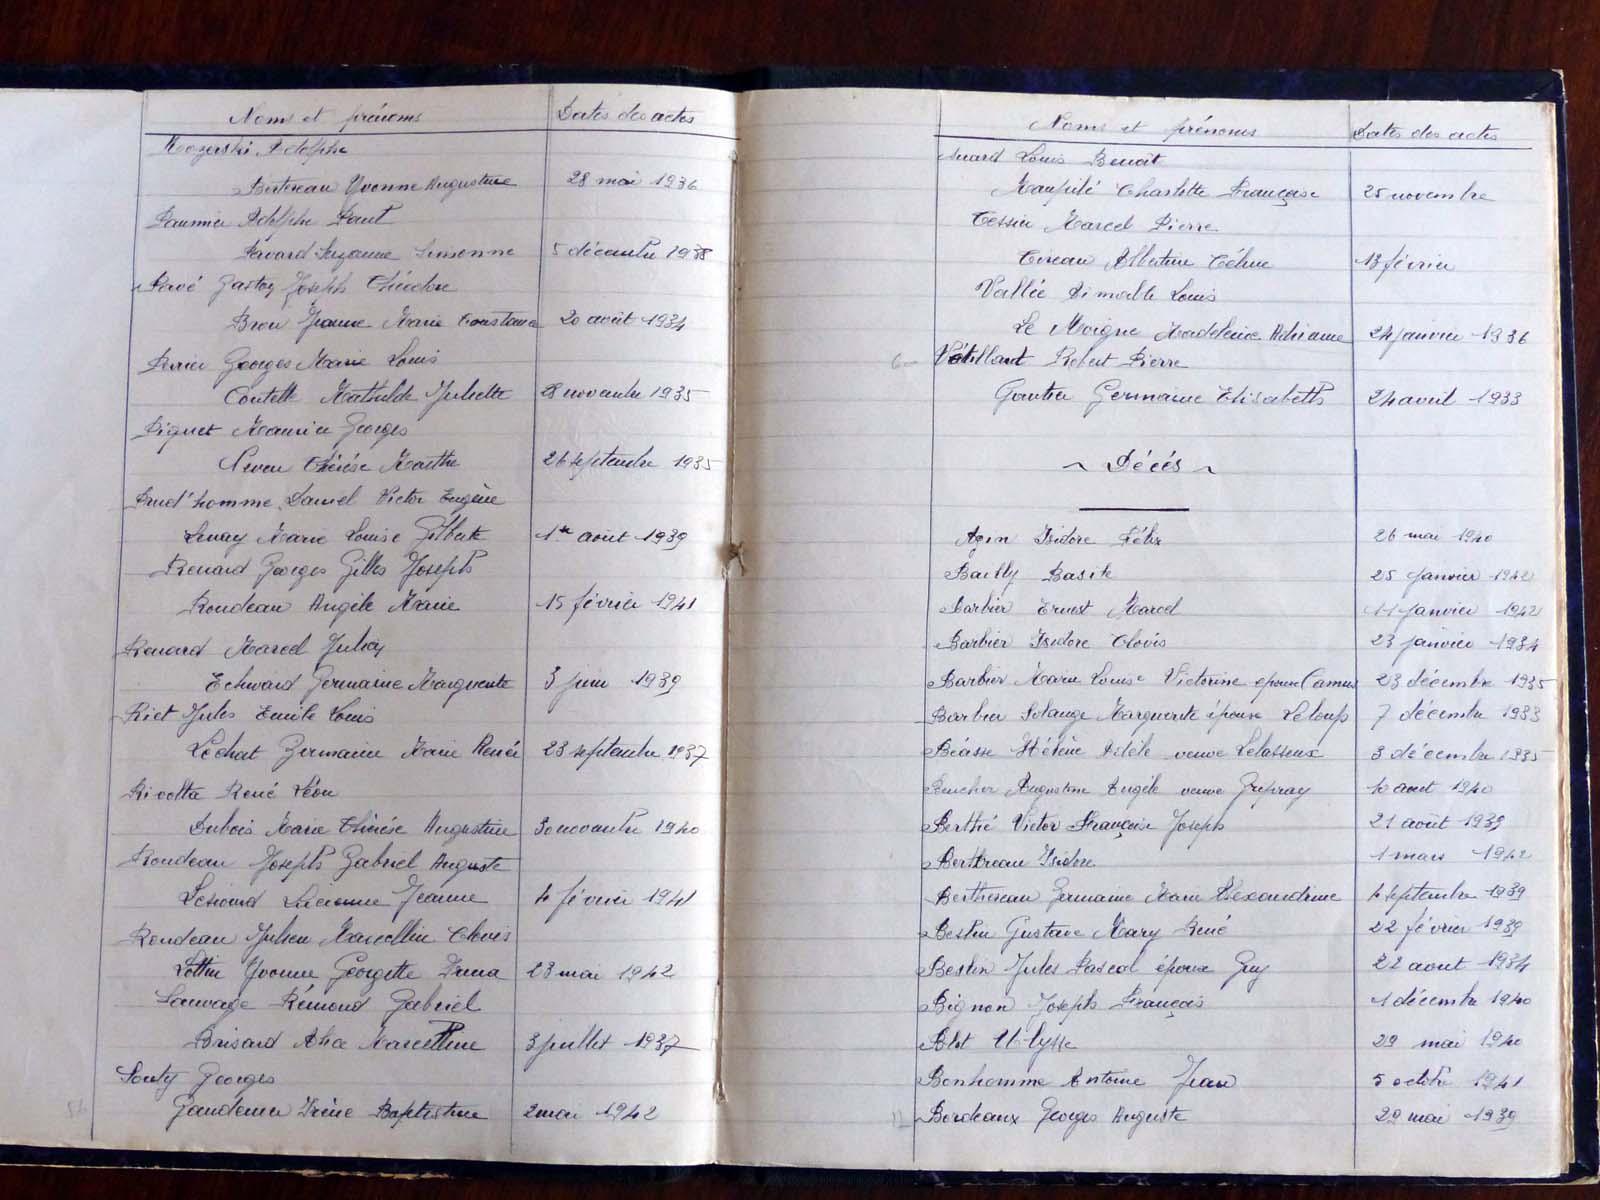 Noms et prénoms Dates des actes
Mozerski Adolphe
Bertereau Yvonne Augustine 28 mai 1936
Paumier Adolphe Paul
Pavard Suzanne Simonne 5 décembre 1938
Pavé Gaston Joseph Théodore
Brou Jeanne Marie Constance 20 août 1934
Perrier Georges Marie Louis
Coutelle Mathilde Juliette 28 novembre 1935
Piquet Maurice Georges
Thérèse Marthe 26 septembre 1935
Prud'homme Daniel Victor Eugène
Lenay Marie Louise Gilberte 1er août 1939
Renard Georges Gilles Joseph
Rondeau Angèle Marie 15 février 1941
Renard Marcel Julien
Echivard Germaine Marguerite 3 juin 1939
Riet Jules Emile Louis
Lechat Germaine Marie Renée 23 septembre 1937
Ricolta René Léon
Dubois Marie Thérèse Augustine 30 novembre 1940
Rondeau Joseph Gabriel Auguste
Lucienne Jeanne 4 février 1941
Rondeau Julien Marcellin Clovis
Lottin Yvonne Georgette Irma 23 mai 1942
Sauvage Rémond Gabriel
Brisard Alice Marcelline 3 juillet 1937
Souty Georges
Irène Baptistine 2 mai 1942
Noms et prénoms Dates des actes
Suard Louis Benoit
Maupilé Charlotte Françoise 25 novembre
Tessier Marcel Pierre
Tireau Albertine Céline 13 février
Vallée Louis
Le Moigne Madeleine Adrianne 24 janvier 1936
Robert Pierre
Gautier Germaine Elisabeth 24 avril 1933
~ Décés ~
Agin Isidore Félix 26 mai 1940
Bailly Basile 25 janvier 1942
Barbier Ernest Marcel 11 janvier 1942
Barbier Isidore Clovis 23 janvier 1934
Barbier Marie Louise Victorine épouse Camus 23 décembre 1935
Barbier Solange Marguerite épouse Leloup 7 décembre 1933
Béasse Hélène Adèle veuve Lelasseux 3 décembre 1935
Augustine Angèle veuve 10 aout 1940
Berthé Victor Françoise Joseph 21 août 1939
Berthreau Isidore 1 mars 1942
Berthereau Germaine Marie Alexandrine 4 septembre 1939
Beslin Gustave Mary René 22 février 1939
Beslin Jules Pascal époux Guy 22 aout 1934
Bignon Joseph Français 1 décembre 1940
Blot Ulysse 29 mai 1940
Bonhomme Antoine Jean 5 octobre 1941
Bordeaux Georges Auguste 29 mai 1939